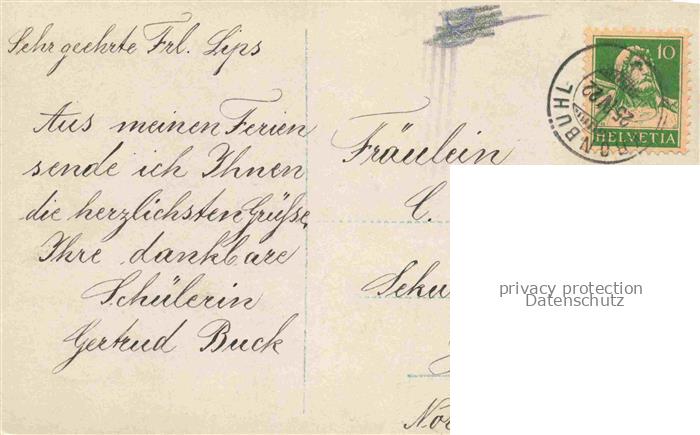 Sehr geehrte Frl. Lips
Aus meinen Ferien
sende ich Ihnen
die herzlichsten Grüsse,
Ihre dankbare
Schülerin
Gertrud Buck
Fräulein
C.
Seku
Nor
10
HELVETIA
BRONBÜHL
privacy protection
Datenschutz